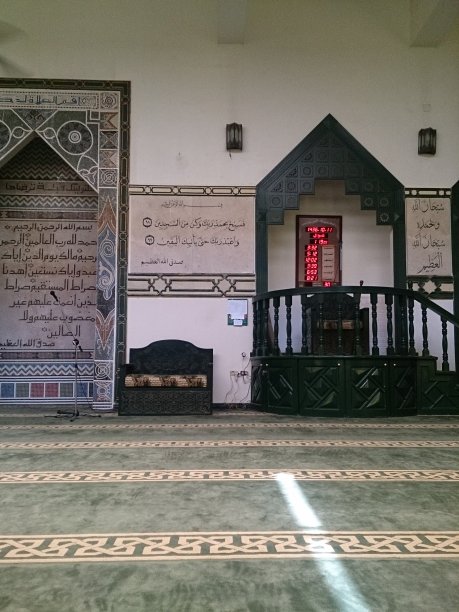 اقم الصلاة
قبلة ترضاها
بسم الله الرحمن الرحيم
لله رب العالمين الرحمن
الرحيم مالك يوم الدين إياك
نعبد وإياك نستعين اهدنا
المستقيم صراط
الذين أنعمت عليهم غير
المغضوب عليهم ولا
الضالين
صدق الله العظيم
بسم الله الرحمن الرحيم
فسبح بحمد ربك وكن من الساجدين
واعبد ربك حتى يأتيك اليقين
صدق الله العظيم
سبحان الله
وبحمده
سبحان الله
العظيم